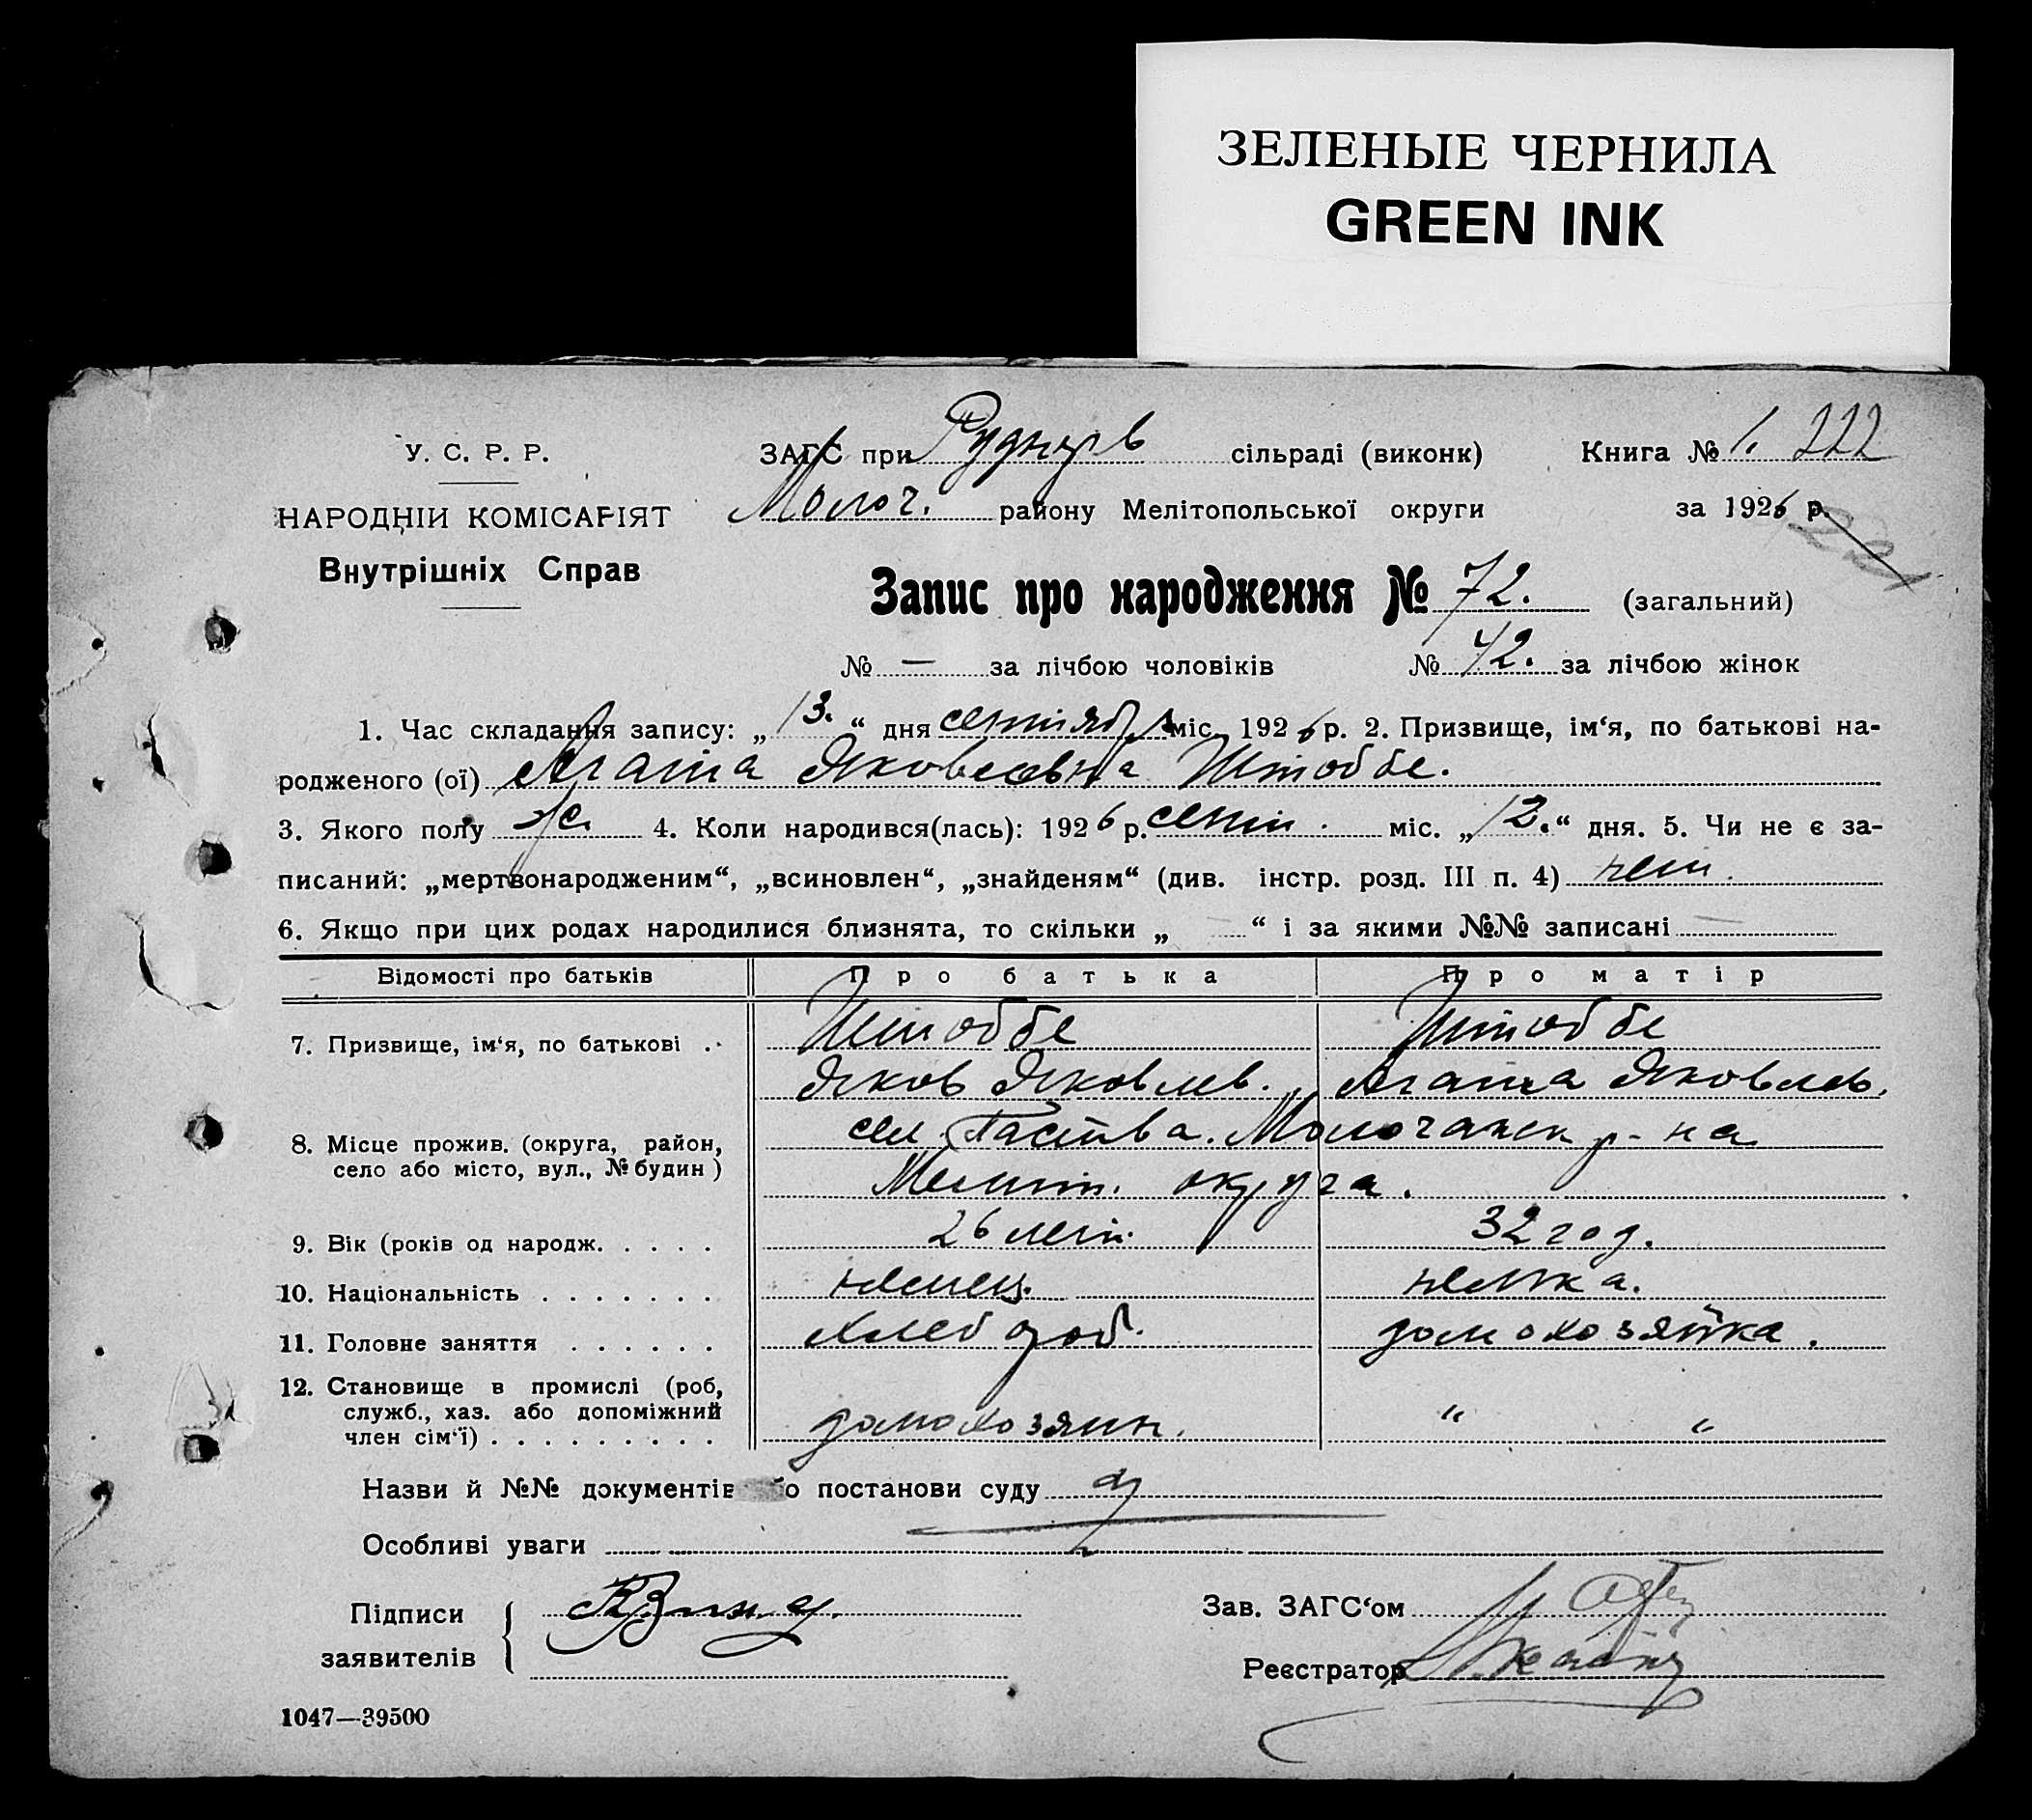 ЗЕЛЕНЫЕ ЧЕРНИЛА
GREEN INK
У. С. Р. Р.
НАРОДНІЙ КОМІСАРІЯТ
Внутрішніх Справ
ЗАГС при сільраді (виконк)
Книга № 1. 222
Молоч. району Мелітопольської округи
за 1926 р.
Запис про народження № 72. (загальний)
№ — за лічбою чоловіків № 42. за лічбою жінок
1. Час складання запису: „13.“ дня сентября міс. 1926 р. 2. Призвище, ім‘я, по батькові на-
родженого (ої) Агата Яковлевна Штоббе.
3. Якого полу ж. 4. Коли народився(лась): 1926 р. сент. міс. „12.“ дня. 5. Чи не є за-
писаний: „мертвонародженим“, „всиновлен“, „знайденям“ (див. інстр. розд. III п. 4) нет.
6. Якщо при цих родах народилися близнята, то скільки „ — “ і за якими №№ записані —
Відомості про батьків Про батька Про матір
7. Призвище, ім‘я, по батькові . . Штоббе Штоббе
Яков Яковлев. Агата Яковлев.
8. Місце прожив. (округа, район, сел. Паства. Молочанск р-на
село або місто, вул., № будин ) Мелит. округа.
9. Вік (років од народж. . . . . 26 лет. 32 год.
10. Національність . . . . . . . немец. немка.
11. Головне заняття . . . . . . хлебороб. домохозяйка.
12. Становище в промислі (роб,
служб., хаз. або допоміжний
член сім‘ї) . . . . . . . . . домохозяин. “ “
Назви й №№ документів або постанови суду
Особливі уваги
Підписи
заявителів
Зав. ЗАГС‘ом
Реєстратор
1047—39500